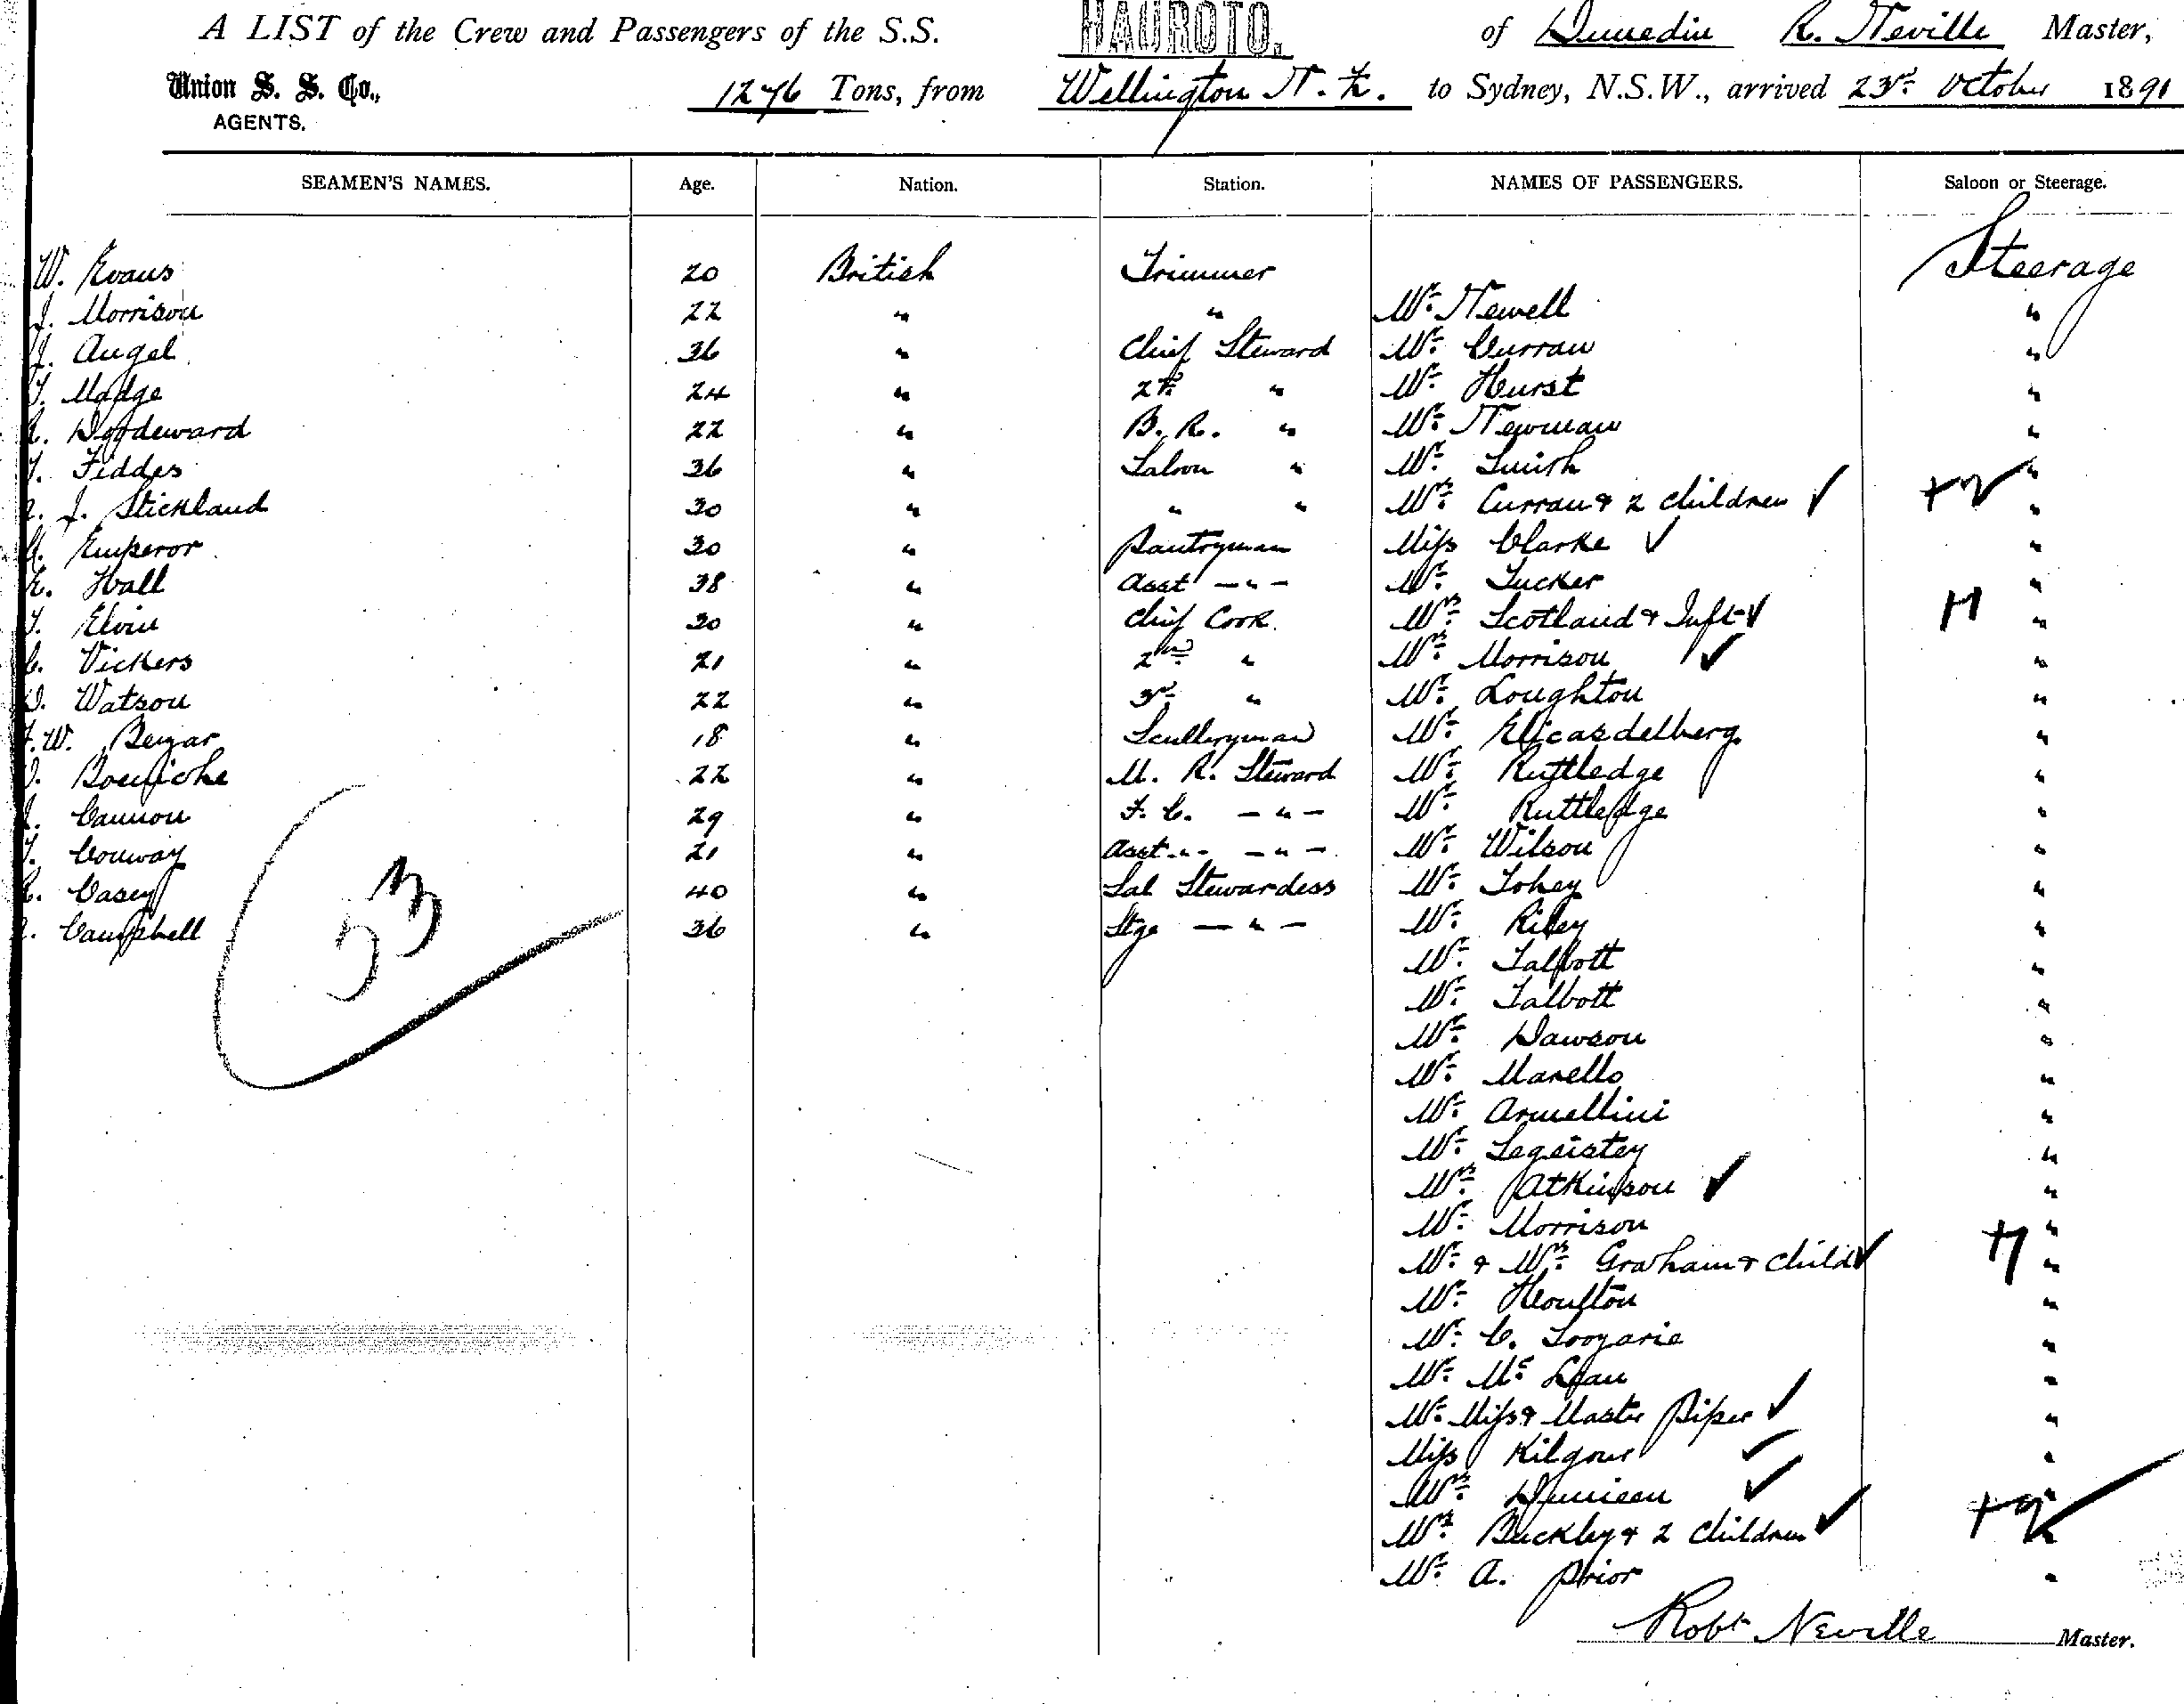 A LIST of the Crew and Passengers of the S.S. HAUROTO. of Dunedin R. Neville Master,
Union S. S. Co., AGENTS. 1276 Tons, from Wellington N. Z. to Sydney, N.S.W., arrived 23rd October 1891
SEAMEN'S NAMES. Age. Nation. Station. NAMES OF PASSENGERS. Saloon or Steerage.
W. Evans 20 British Trimmer Steerage
J. Morrison 22 " " Mr. Newell "
J. Angel 36 " Chief Steward Mr. Curran "
T. Madge 24 " 2nd " Mr. Hurst "
Woodeward 22 " B. R. " Mr. Newman "
Fiddes 36 " Saloon " Mr. Smith "
J. Stickland 30 " " " Mrs. Curran & 2 children ✓ +2 "
Emperor 30 " Pantryman Miss Clarke ✓ "
Hall 38 " Asst — " — Mr. Tucker "
Elvin 30 " Chief Cook. Mrs. Scotland & Inft ✓ +1 "
Vickers 21 " 2nd " Mrs. Morrison ✓ "
Watson 22 " 3rd " Mr. Loughton "
W. 18 " Sculleryman Mr. "
22 " M. R. Steward Mr. Ruttledge "
Cannon 29 " F. C. — " — Mr. Ruttledge "
Conway 21 " Asst " — " — Mr. Wilson "
Casey 40 " Sal Stewardess Mr. Tohey "
Campbell 36 " Stge — " — Mr. Riley "
53
Mr. Talbott "
Mr. Talbott "
Mr. Dawson "
Mr. Manello "
Mr. Armellini "
Mr. "
Mrs. Atkinson ✓ "
Mr. Morrison "
Mr. & Mrs. Graham & child ✓ +1 "
Mr. Houlton "
Mr. C. "
Mr. Mc Lean "
Mr. Miss & Master Piper ✓ "
Miss Kilgour ✓ "
Mrs. ✓ "
Mrs. Buckley & 2 Children ✓ +2 "
Mr. A. Prior "
Robt Neville Master.